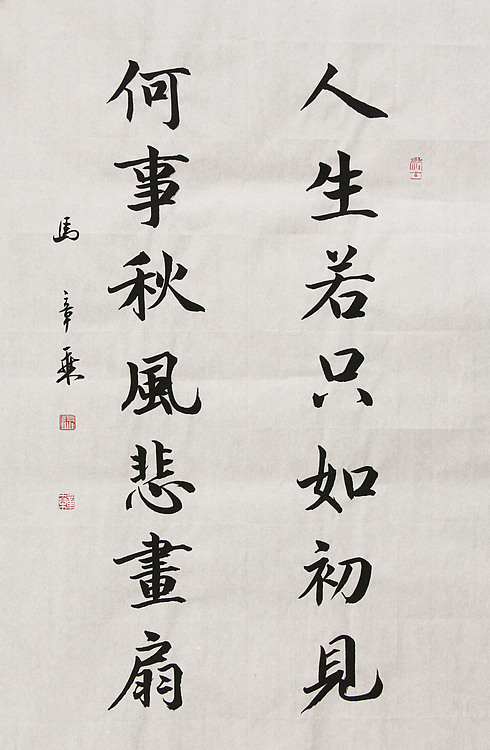 人生若只如初見
何事秋風悲畫扇
馬章乘